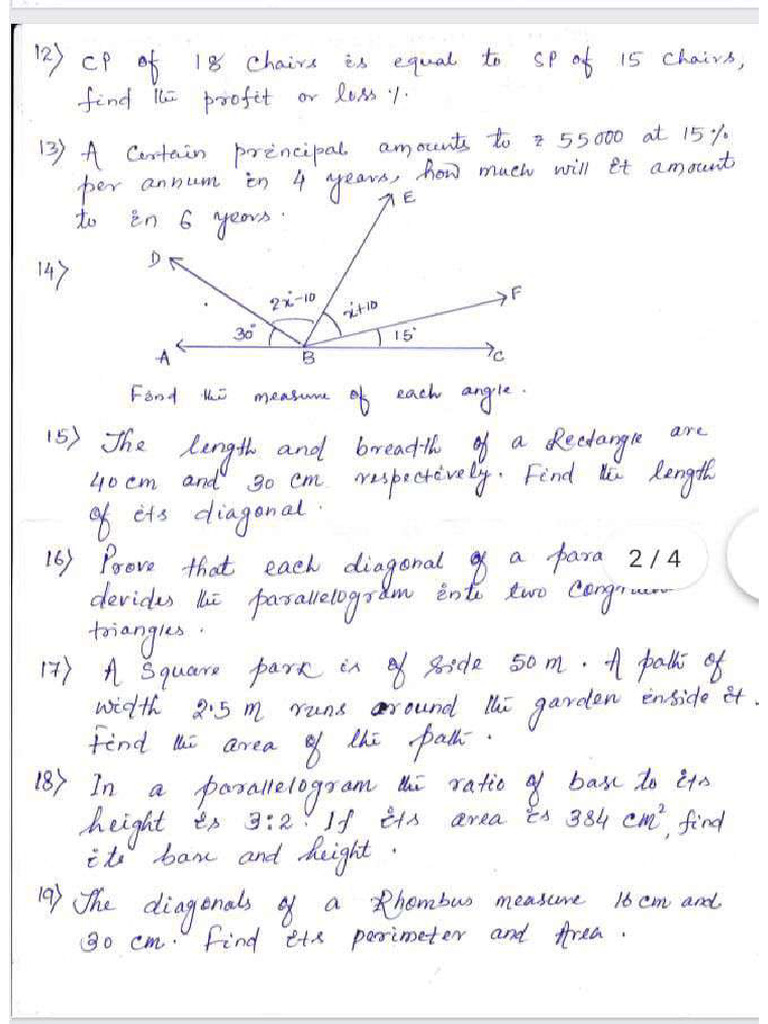 12) CP of 18 chairs is equal to SP of 15 chairs,
find the profit or loss %.
13) A Certain principal amounts to ₹ 55000 at 15%
per annum in 4 years, how much will it amount
to in 6 years.
14)
D
E
F
2x-10
x+10
30°
15°
A
B
C
Find the measure of each angle.
15) The length and breadth of a Rectangle are
40 cm and 30 cm respectively. Find the length
of its diagonal.
16) Prove that each diagonal of a para
2 / 4
devides the parallelogram into two
triangles.
17) A Square park is of side 50 m. A path of
width 2.5 m runs around the garden inside it.
Find the area of the path.
18) In a parallelogram the ratio of base to its
height is 3:2. If its area is 384 cm², find
its base and height.
19) The diagonals of a Rhombus measure 16 cm and
30 cm. Find its perimeter and Area.